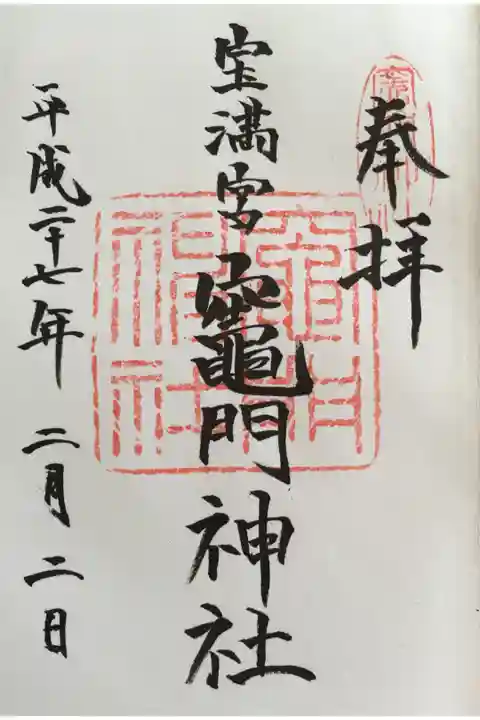 奉拝
宝満宮 竈門神社
平成二十七年 二月 二日